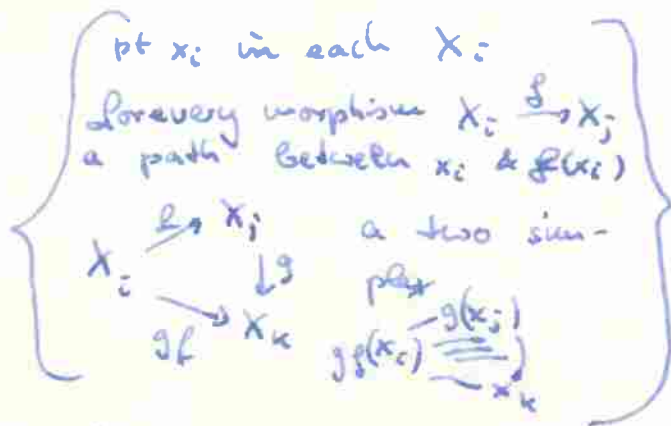 pt x_i in each X_i
for every morphism X_i →f X_j
a path between x_i & f(x_i)
X_i →f X_j a two sim-
↓g plex
gf X_k gf(x_i) g(x_j)
x_k